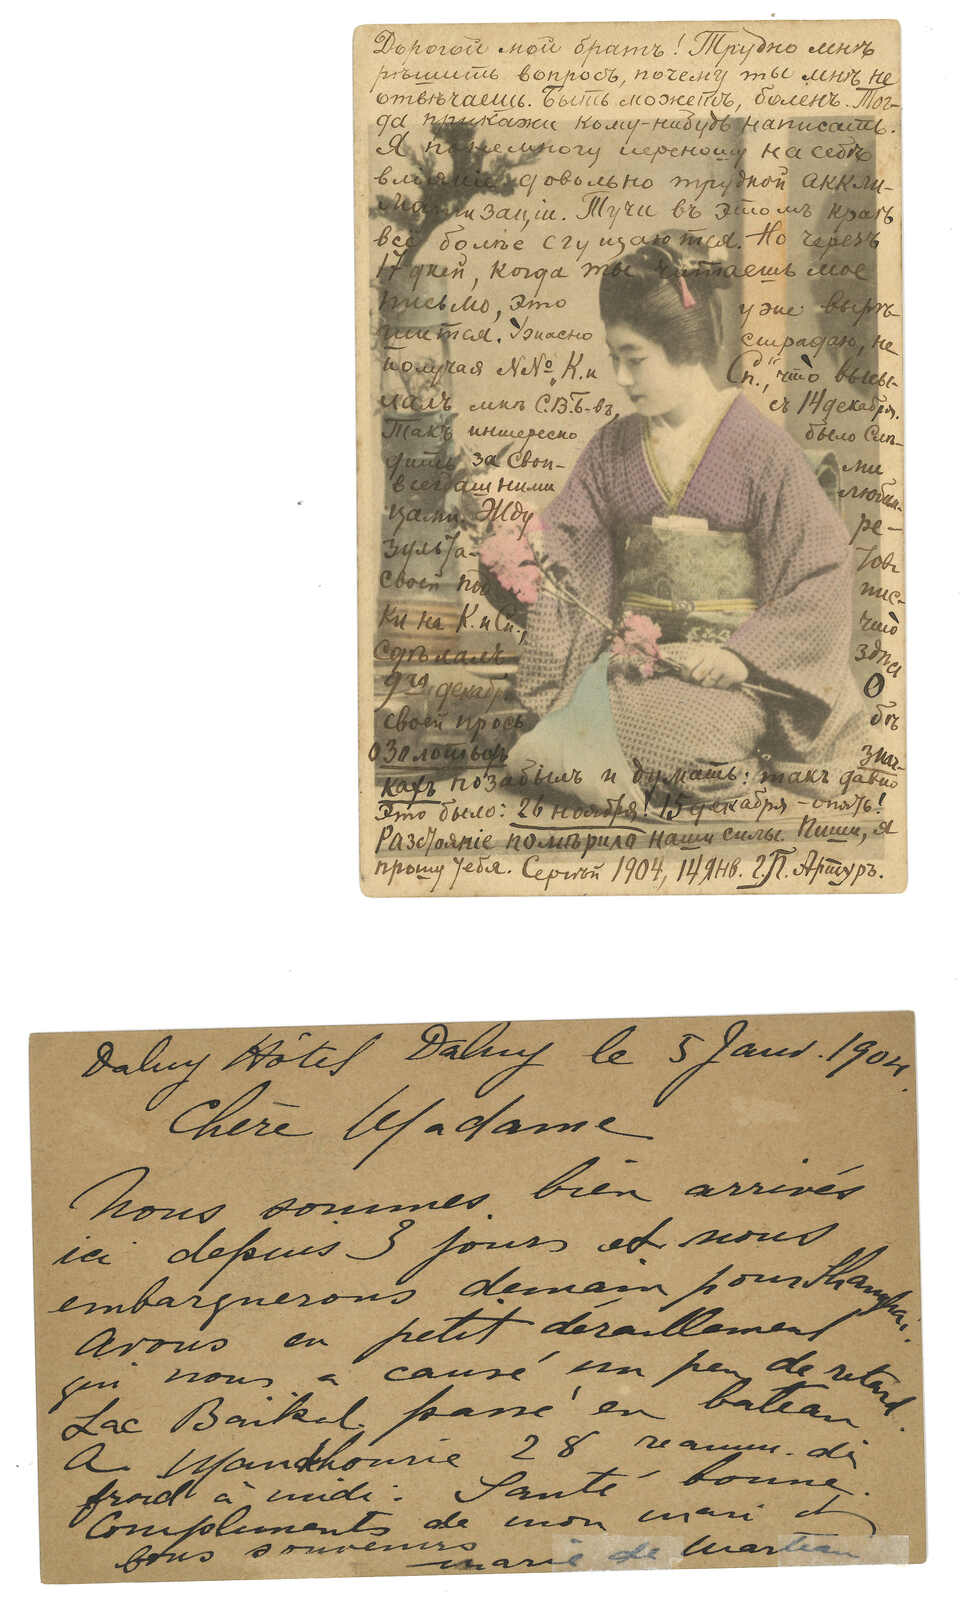 Дорогой мой братъ! Трудно мнѣ
рѣшить вопросъ, почему ты мнѣ не
отвѣчаешь. Быть можетъ, боленъ. Тог-
да прикажи кому-нибудь написать.
Я понемногу переношу на себѣ
вліяніе довольно трудной аккли-
матизаціи. Тучи въ этомъ краѣ
всё болѣе сгущаются. Но черезъ
17 дней, когда ты читаешь мое
письмо, это уже вырѣ-
шится. Ужасно страдаю, не
получая №№ "К. и Сп.", что высы-
лалъ мнѣ С.В.Б-въ, съ 14 декабря.
Такъ интересно было слѣ-
дить за свои-ми
всегдашними любим-
цами. Жду ре-
зульта- товъ
своей под пис-
ки на К. и Сп., что
сдѣлалъ здѣсь
9го декабр. О
своей прось бѣ
о Золотыхъ знач-
кахъ позабылъ и думать: такъ давно
это было: 26 ноября! 15 декабря - опять!
Разстояніе помѣрило наши силы. Пиши, я
прошу тебя. Сергѣй 1904, 14 янв. г. П. Артуръ.
Dalny Hôtel Dalny le 5 Janv. 1904.
Chère Madame
Nous sommes bien arrivés
ici depuis 3 jours et nous
embarquerons demain pour Shanghai.
Avons eu petit déraillement
qui nous a causé un peu de retard.
Lac Baikal passé en bateau
A Mandhourie 28 reaum. de
froid à midi. Santé bonne.
Compliments de mon mari et
bons souvenirs
Marie de Marteau